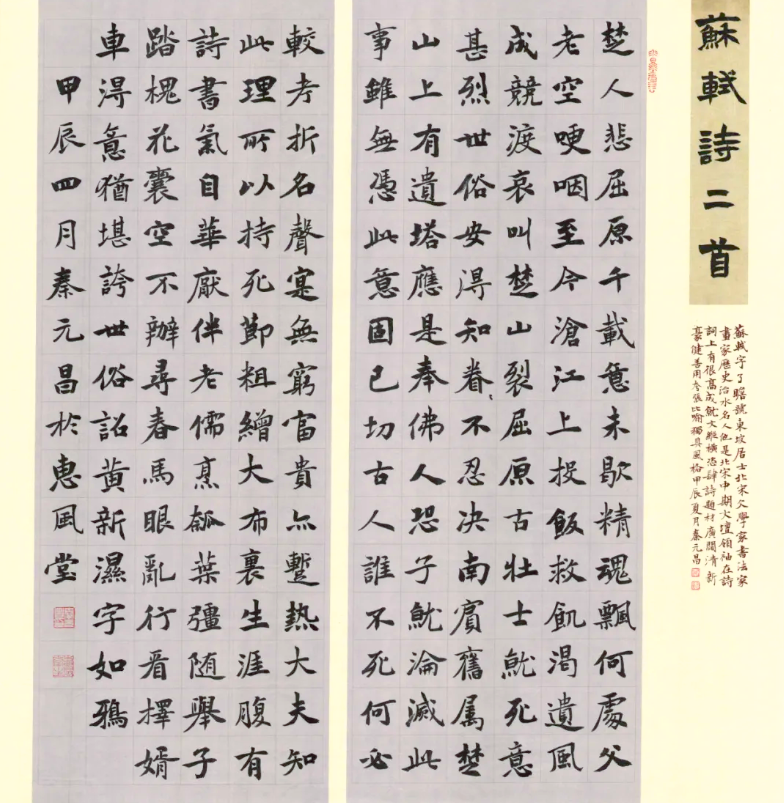 蘇軾詩二首
蘇軾字子瞻號東坡居士北宋文學家書法家
畫家歷史治水名人他是北宋中期文壇領袖在詩
詞上有很高成就文縱橫恣肆詩題材廣闊清新
豪健善用夸張比喻獨具風格甲辰夏月秦元昌
楚人悲屈原千載意未歇精魂飄何處父
老空哽咽至今滄江上投飯救飢渴遺風
成競渡哀叫楚山裂屈原古壯士就死意
甚烈世俗安得知眷〻不忍決南賓舊属楚
山上有遺塔應是奉佛人恐子就淪滅此
事雖無憑此意固已切古人誰不死何必
較考折名聲寔無窮富貴亦蹔熱大夫知
此理所以持死節粗繒大布裹生涯腹有
詩書氣自華厭伴老儒烹瓠葉彊随舉子
踏槐花囊空不辦尋春馬眼亂行看擇婿
車得意猶堪誇世俗詔黃新濕字如鴉
甲辰四月秦元昌於惠風堂